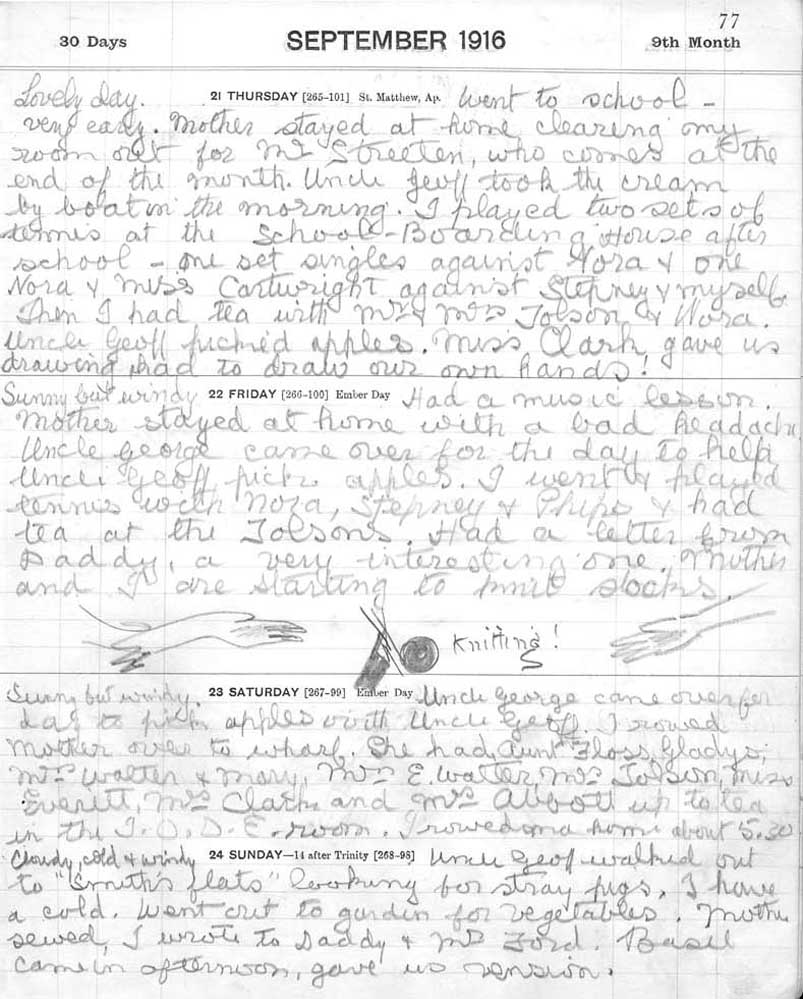 77
30 Days SEPTEMBER 1916 9th Month
Lovely day. 21 THURSDAY [265-101] St. Matthew, Ap. Went to school -
very early. Mother stayed at home clearing my
room out for Mr Streeten, who comes at the
end of the month. Uncle Geoff took the cream
by boat in the morning. I played two sets of
tennis at the School-Boarding House after
school - one set singles against Nora & one
Nora & Miss Cartwright against Stepney & myself.
Then I had tea with Mr & Mrs Tolson & Nora.
Uncle Geoff picked apples. Miss Clark gave us
drawing, had to draw our own hands!
Sunny but windy 22 FRIDAY [266-100] Ember Day Had a music lesson.
Mother stayed at home with a bad headache
Uncle George came over for the day to help
Uncle Geoff pick apples. I went & played
tennis with Nora, Stepney & Phips & had
tea at the Tolsons. Had a letter from
Daddy, a very interesting one. Mother
and I are starting to knit socks.
Knitting!
Sunny but windy. 23 SATURDAY [267-99] Ember Day Uncle George came over for
day to pick apples with Uncle Geoff. I rowed
Mother over to wharf. She had Aunt Floss, Gladys,
Mrs Walter & Mary, Mrs E. Walter, Mrs Tolson, Miss
Everett, Mrs Clark and Mrs Abbott up to tea
in the I.O.D.E. room. I rowed ma home about 5.30
Cloudy, cold & windy 24 SUNDAY—14 after Trinity [268-98] Uncle Geoff walked out
to "Smith's flats" looking for stray pigs. I have
a cold. Went out to garden for vegetables. Mother
sewed, I wrote to Daddy & Mrs Ford. Basil
came in afternoon, gave us venison.